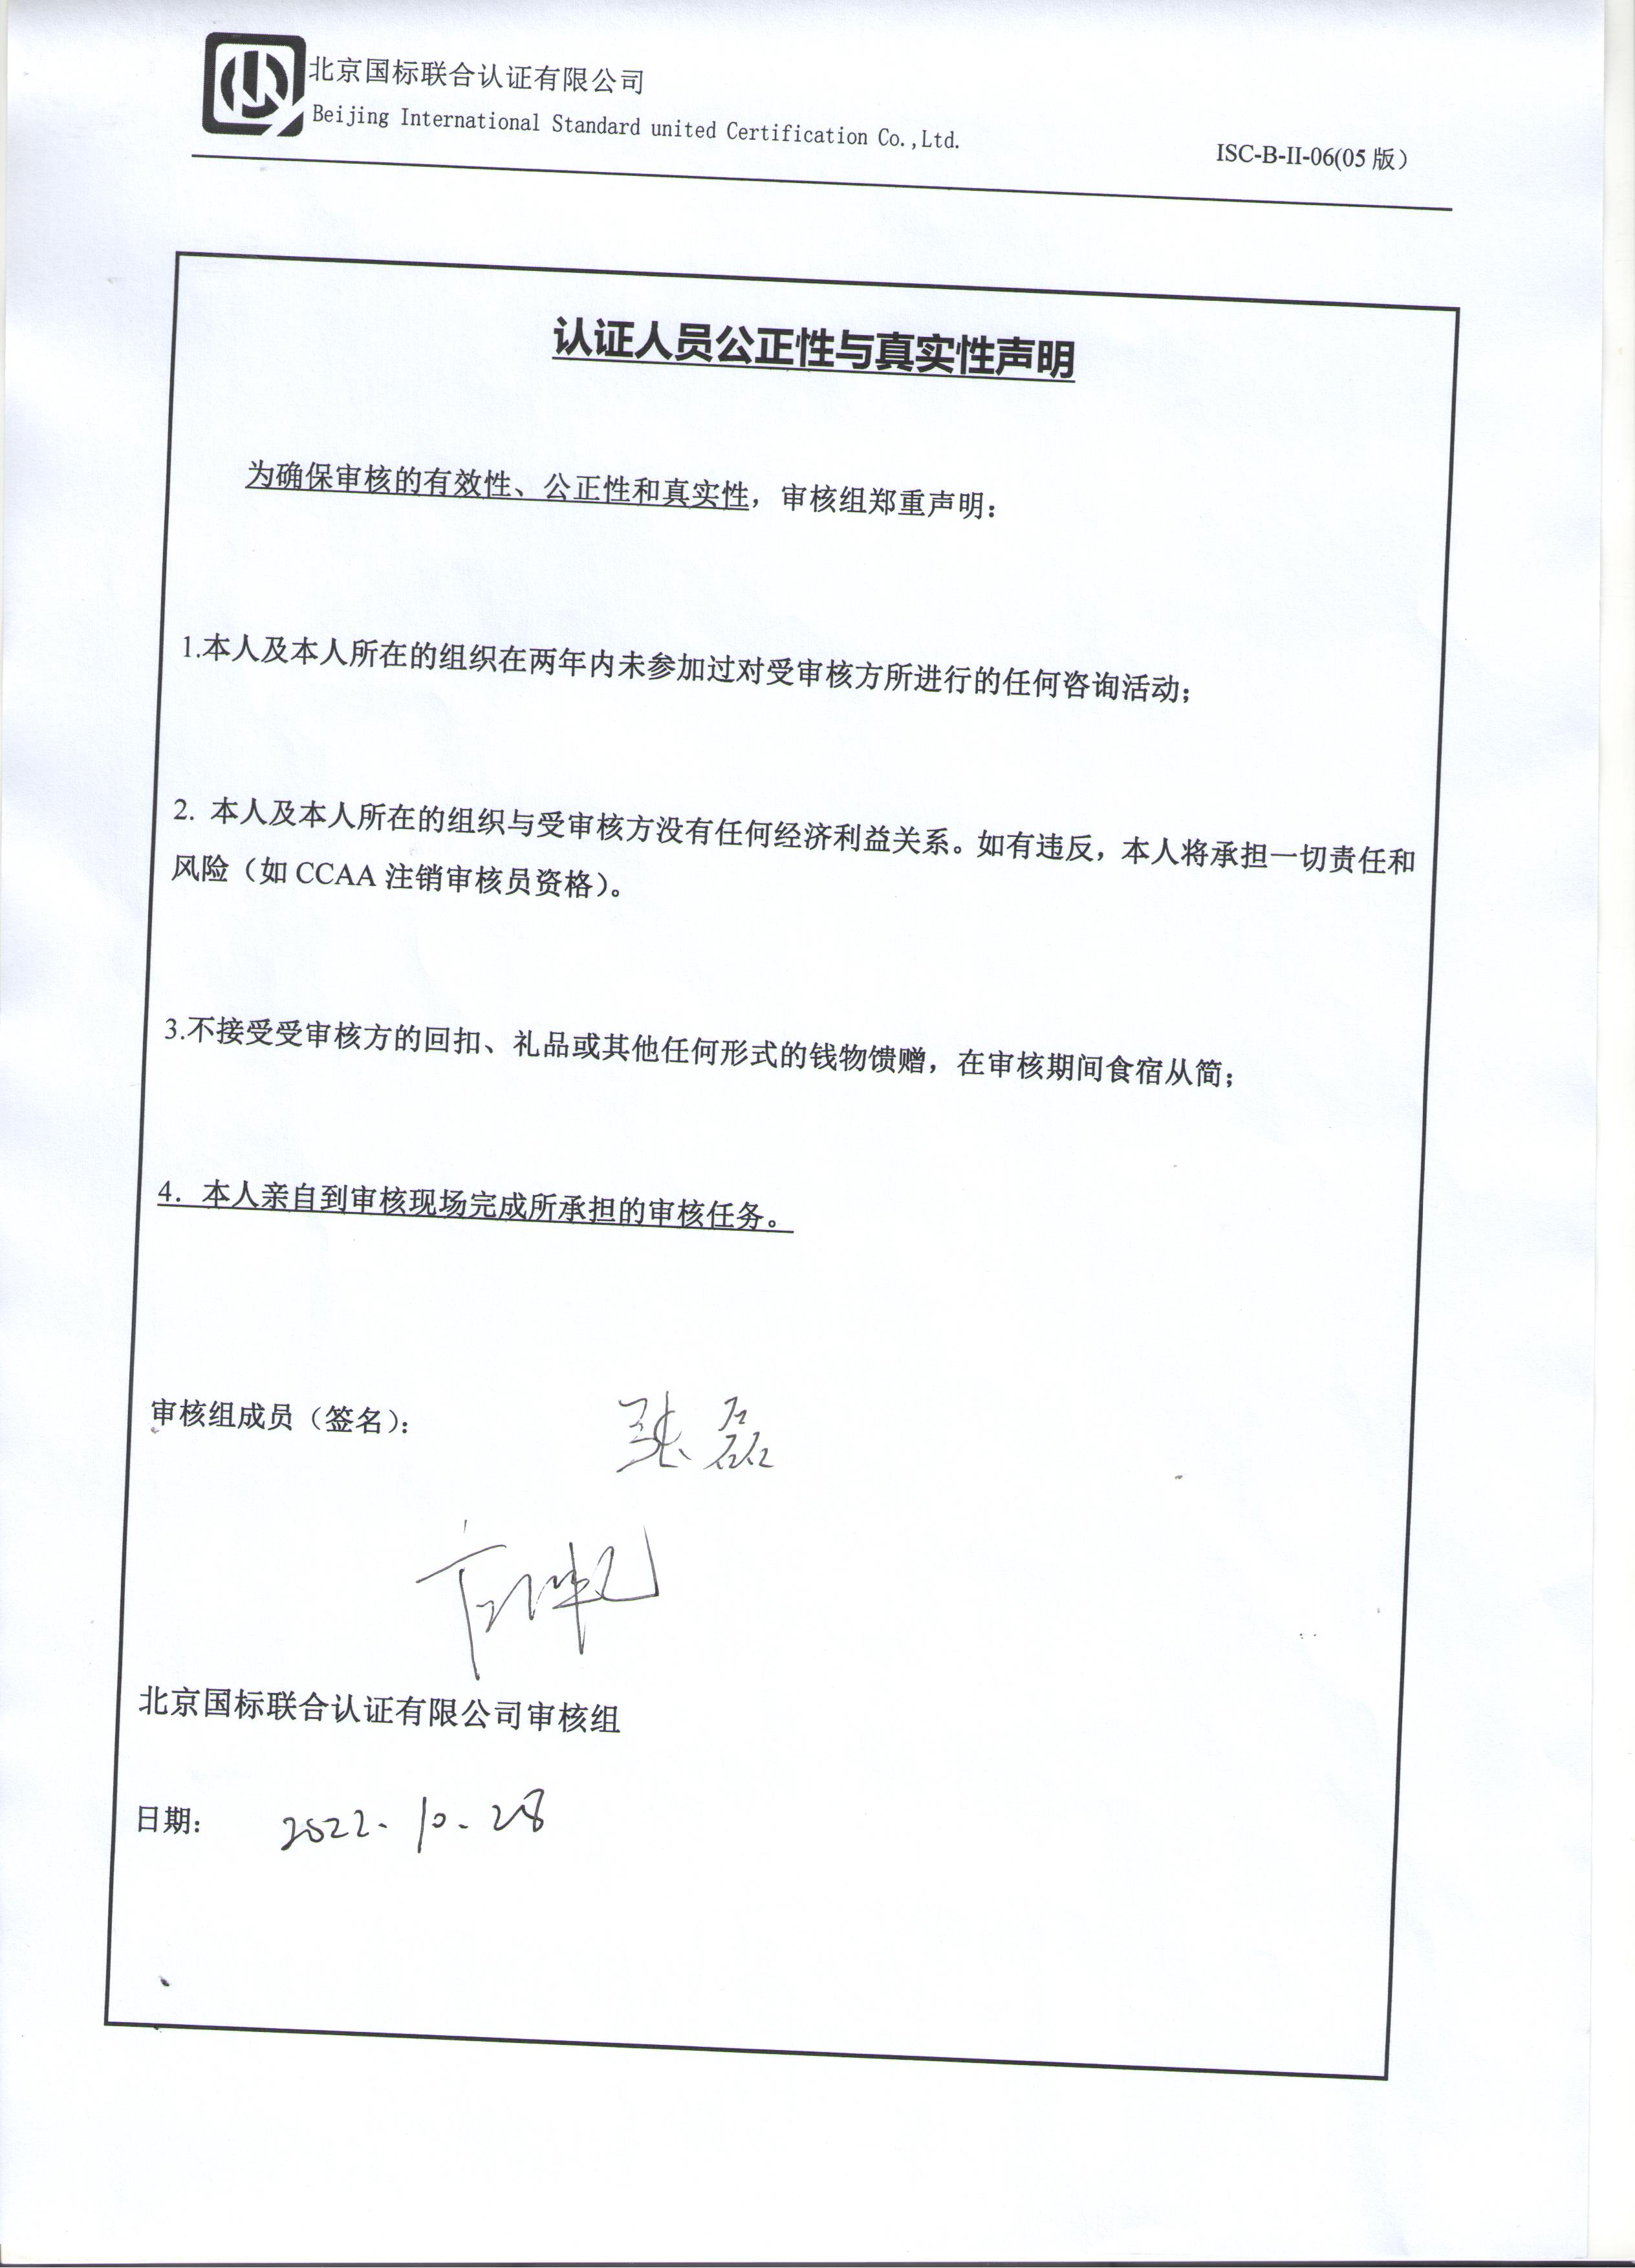 北京国标联合认证有限公司
Beijing International Standard united Certification Co.,Ltd.
ISC-B-II-06(05 版)
认证人员公正性与真实性声明
为确保审核的有效性、公正性和真实性，审核组郑重声明：
1.本人及本人所在的组织在两年内未参加过对受审核方所进行的任何咨询活动；
2. 本人及本人所在的组织与受审核方没有任何经济利益关系。如有违反，本人将承担一切责任和
风险（如 CCAA 注销审核员资格）。
3.不接受受审核方的回扣、礼品或其他任何形式的钱物馈赠，在审核期间食宿从简；
4. 本人亲自到审核现场完成所承担的审核任务。
审核组成员（签名）：
张磊
北京国标联合认证有限公司审核组
日期： 2022.10.28